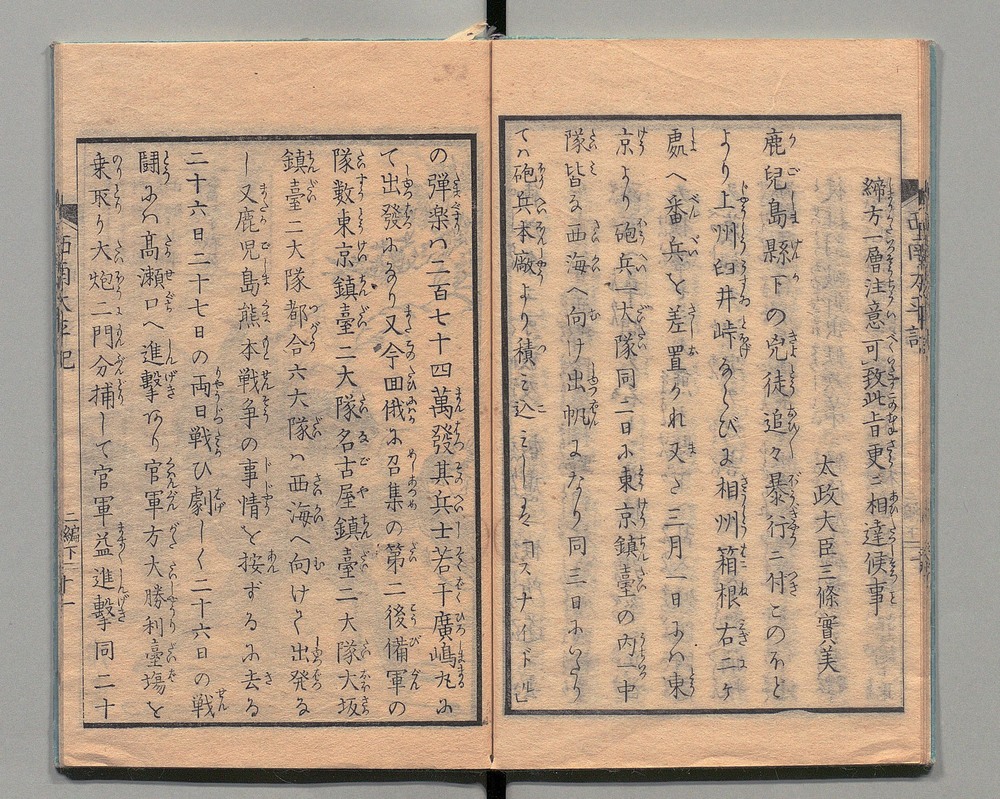 締方一層注意可致此旨更ニ相達候事
太政大臣三條實美
鹿兒島縣下の兇徒追々暴行ニ付このほど
より上州臼井峠ならびに相州箱根右二ヶ
處へ番兵を差置かれ又さ三月一日にハ東
京より砲兵一大隊同二日に東京鎮臺の内一中
隊皆な西海へ向け出帆になり同三日にいたり
てハ砲兵本廠より積ミ込ミし スナイドル
の弾薬ハ二百七十四萬發其兵士若干廣嶋丸に
て出發になり又今回俄に召集の第二後備軍の
隊数東京鎮臺二大隊名古屋鎮臺二大隊大坂
鎮臺二大隊都合六大隊ハ西海へ向けて出発る
し又鹿児島熊本戦争の事情を按ずるに去る
二十六日二十七日の両日戦ひ劇しく二十六日の戦
闘にハ髙瀬口へ進撃あり官軍方大勝利臺場を
乗取り大炮二門分捕して官軍益進撃同二十
西南太平記
二編下
十一